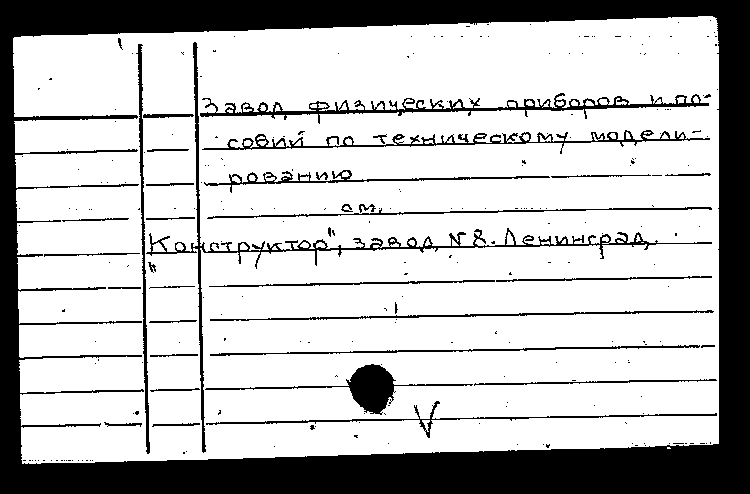 Завод физических приборов и по-
собий по техническому модели-
рованию
см.
"Конструктор", завод N 8. Ленинград.
V